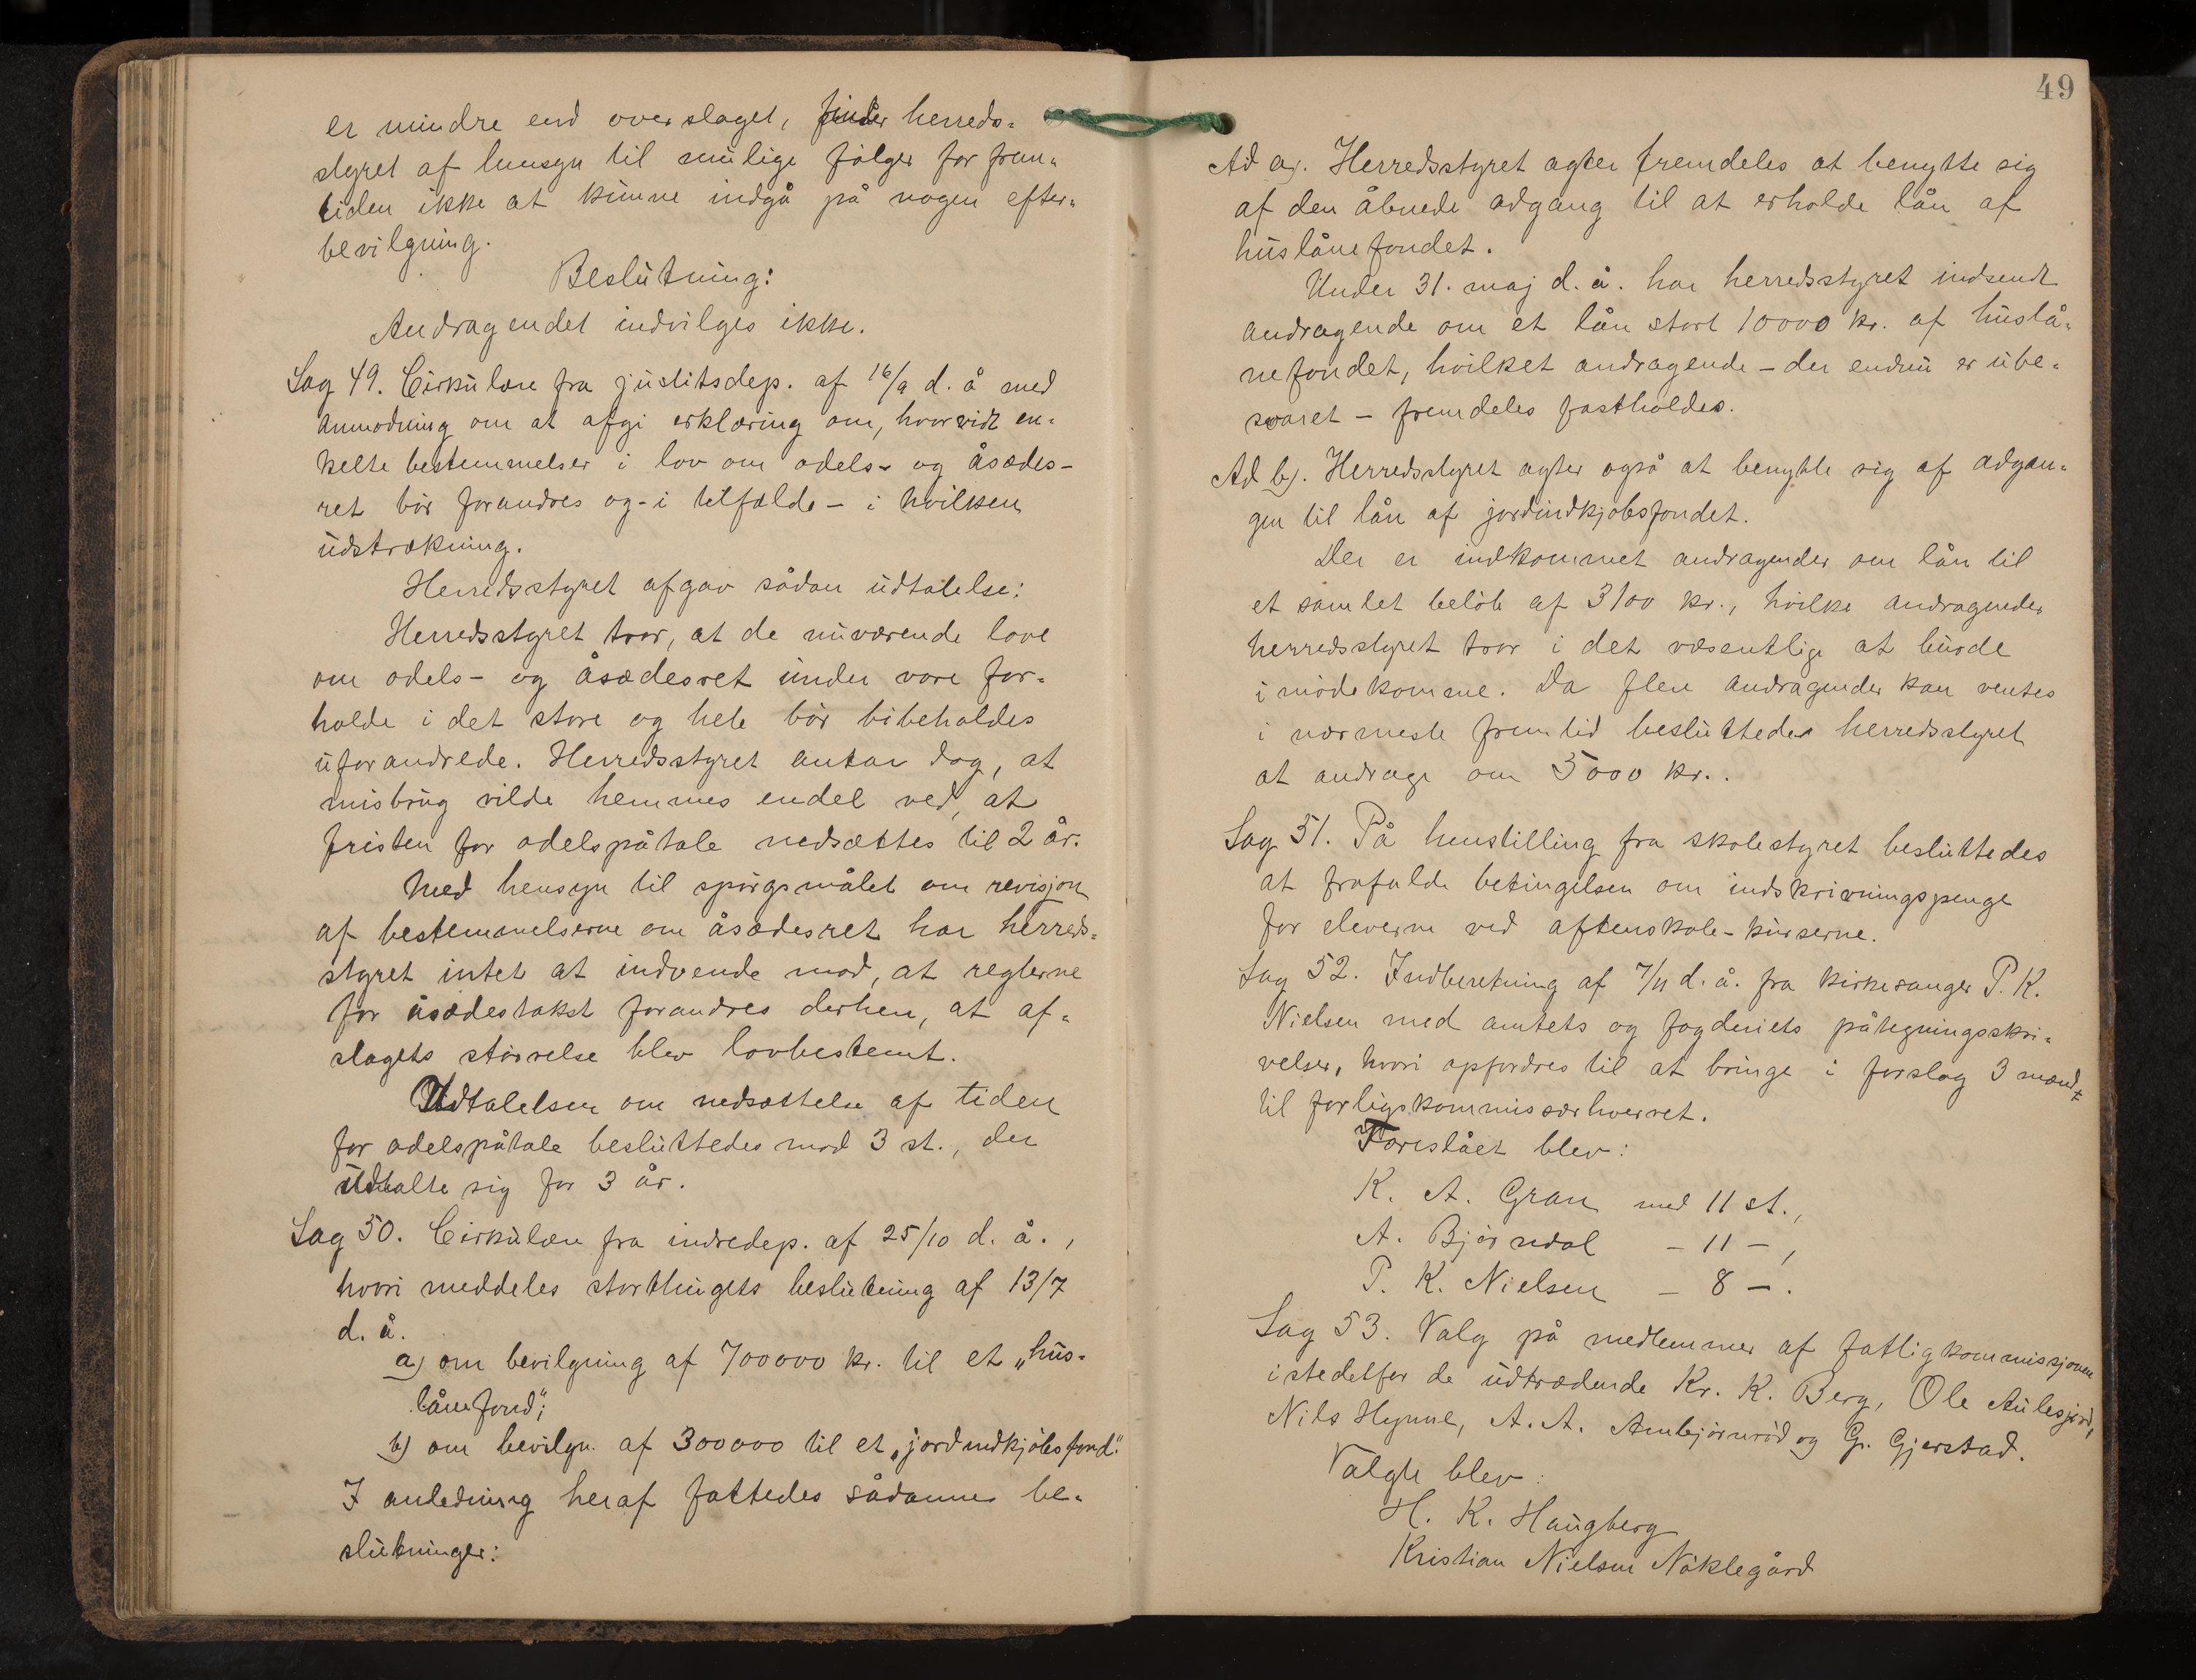 er mindre end overslaget, finder herreds-
styret af hensyn til mulige følger for frem-
tiden ikke at kunne indgå på nogen efter-
bevilgning.
Beslutning:
Andragendet indvilges ikke.
Sag 49. Cirkulære fra justitsdep. af 16/9 d. å med
anmodning om at afgi erklæring om, hvorvidt en-
kelte bestemmelser i lov om odels- og åsædes-
ret bør forandres og - i tilfælde - i hvilken
udstrækning.
Herredsstyret afgav sådan udtalelse:
Herredsstyret tror, at de nuværende love
om odels- og åsædesret under vore for-
holde i det store og hele bør bibeholdes
uforandrede. Herredsstyret antar dog, at
misbrug vilde hemmes endel ved, at
fristen for odelspåtale nedsættes til 2 år.
Med hensyn til spørgsmålet om revisjon
af bestemmelserne om åsædesret har herreds-
styret intet at indvende mod, at reglerne
for åsædestakst forandres derhen, at af-
slagets størrelse blev lovbestemt.
Udtalelsen om nedsættelse af tiden
for odelspåtale besluttedes mod 3 st., der
udtalte sig for 3 år.
Sag 50. Cirkulære fra indredep. af 25/10 d. å.,
hvori meddeles storthingets beslutning af 13/7
d. å.
a) om bevilgning af 700000 kr. til et „hus-
lånefond";
b) om bevilgn. af 300000 til et „jordindkjøbsfond."
I anledning heraf fattedes sådanne be-
slutninger:
49
Ad a). Herredsstyret agter fremdeles at benytte sig
af den åbnede adgang til at erholde lån af
huslånefondet.
Under 31. maj d. å. har herredsstyret indsendt
andragende om et lån stort 10000 kr. af huslå-
nefondet, hvilket andragende - der endnu er ube-
svaret - fremdeles fastholdes.
Ad b). Herredsstyret agter også at benytte sig af adgan-
gen til lån af jordindkjøbsfondet.
Der er indkommet andragender om lån til
et samlet beløb af 3100 kr., hvilke andragender
herredsstyret tror i det væsentlige at burde
imødekomme. Da flere andragender kan ventes
i nærmeste fremtid besluttedes herredsstyret
at andrage om 5000 kr..
Sag 51. På henstilling fra skolestyret besluttedes
at frafalde betingelsen om indskrivningspenge
for eleverne ved aftenskole-kurserne.
Sag 52. Indberetning af 7/11 d. å. fra kirkesanger P. K.
Nielsen med amtets og fogderiets påtegningsskri-
velser, hvori opfordres til at bringe i forslag 3 mænd
til forligskommissærhvervet.
Foreslået blev:
K. A. Gran med 11 st.,
A. Bjørndal - 11 -,
P. K. Nielsen - 8 -.
Sag 53. Valg på medlemmer af fattigkommissjonen
istedetfor de udtrædende Kr. K. Berg, Ole Aulesjord,
Nils Hynne, A. A. Ambjørnrød og G. Gjerstad.
Valgte blev:
H. K. Haugberg
Kristian Nielsen Nøklegård